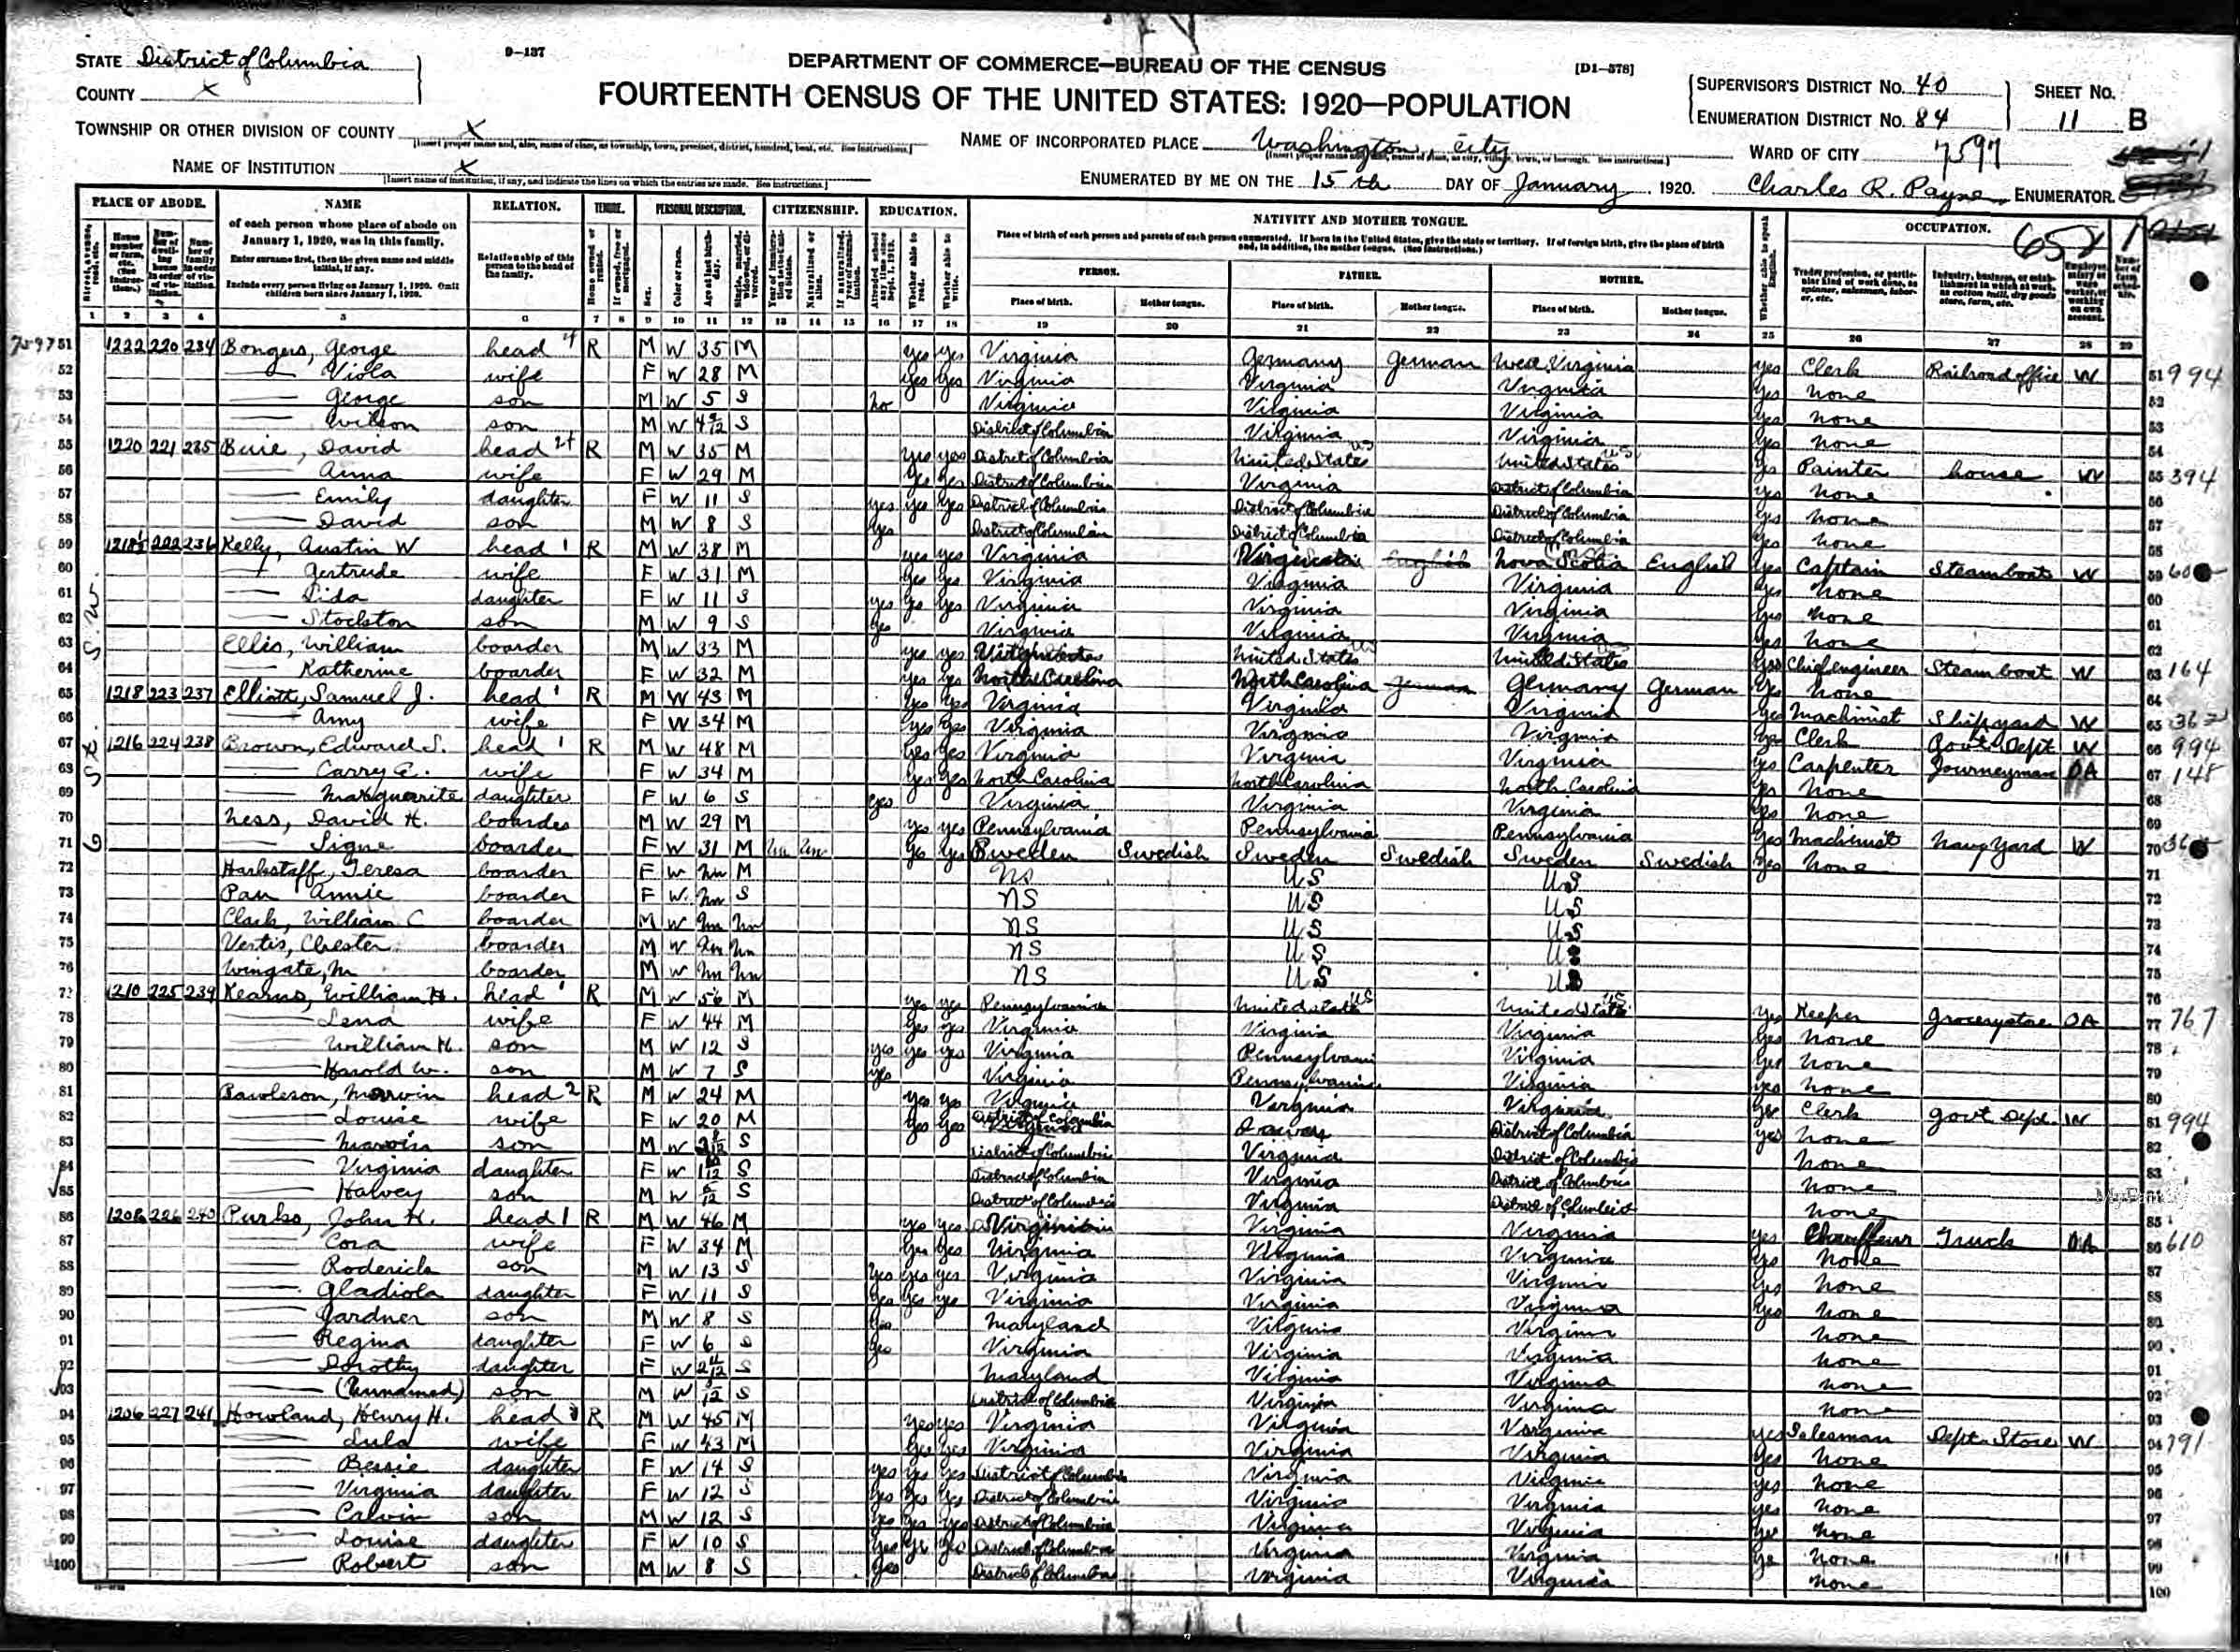 STATE District of Columbia
COUNTY x
TOWNSHIP OR OTHER DIVISION OF COUNTY x
[Insert proper name and, also, name of class, as township, town, precinct, district, hundred, beat, etc. See instructions.]
NAME OF INSTITUTION x
[Insert name of institution, if any, and indicate the lines on which the entries are made. See instructions.]
9-137
DEPARTMENT OF COMMERCE—BUREAU OF THE CENSUS
[D1-578]
FOURTEENTH CENSUS OF THE UNITED STATES: 1920—POPULATION
NAME OF INCORPORATED PLACE Washington, City
ENUMERATED BY ME ON THE 15th DAY OF January, 1920. Charles R. Payne, ENUMERATOR.
SUPERVISOR'S DISTRICT No. 40
ENUMERATION DISTRICT No. 84
SHEET No. 11 B
WARD OF CITY 7597
PLACE OF ABODE. NAME RELATION. TENURE. PERSONAL DESCRIPTION. CITIZENSHIP. EDUCATION. NATIVITY AND MOTHER TONGUE. OCCUPATION.
of each person whose place of abode on January 1, 1920, was in this family.
Enter surname first, then the given name and middle initial, if any.
Include every person living on January 1, 1920. Omit children born since January 1, 1920.
Relationship of this person to the head of the family.
Place of birth of each person and parents of each person enumerated. If born in the United States, give the state or territory. If of foreign birth, give the place of birth and, in addition, the mother tongue. (See instructions.)
PERSON. FATHER. MOTHER.
Place of birth. Mother tongue. Place of birth. Mother tongue. Place of birth. Mother tongue.
1 2 3 4 5 6 7 8 9 10 11 12 13 14 15 16 17 18 19 20 21 22 23 24 25 26 27 28 29
51 1222 220 234 Bongers, George head R M W 35 M yes yes Virginia Germany German West Virginia yes Clerk Railroad office W 994
52 Viola wife F W 28 M yes yes Virginia Virginia Virginia yes none
53 George son M W 5 S no Virginia Virginia Virginia yes none
54 Wilson son M W S District of Columbia Virginia Virginia yes none
55 1220 221 235 Buie, David head R M W 35 M yes yes District of Columbia United States United States yes Painter house W 394
56 Anna wife F W 29 M yes yes District of Columbia Virginia District of Columbia yes none
57 Emily daughter F W 11 S yes yes yes District of Columbia District of Columbia District of Columbia yes none
58 David son M W 8 S yes District of Columbia District of Columbia District of Columbia yes none
59 222 236 Kelly, Austin W head 1 R M W 38 M yes yes Virginia Nova Scotia English yes Captain Steamboat W
60 Gertrude wife F W 31 M yes yes Virginia Virginia Virginia yes none
61 Lida daughter F W 11 S yes yes yes Virginia Virginia Virginia yes none
62 Stockton son M W 9 S yes Virginia Virginia Virginia yes none
63 Ellis, William boarder M W 33 M yes yes United States United States yes Chief engineer Steam boat W 164
64 Katherine boarder F W 32 M yes yes North Carolina North Carolina Germany German yes none
65 1218 223 237 Elliott, Samuel J. head 1 R M W 43 M yes yes Virginia Virginia Virginia yes Machinist Ship yard W
66 Amy wife F W 34 M yes yes Virginia Virginia Virginia yes Clerk Govt. Dept W 994
67 1216 224 238 Brown, Edward S. head 1 R M W 48 M yes yes Virginia Virginia Virginia yes Carpenter Journeyman OA 145
68 Carry E. wife F W 34 M yes yes North Carolina North Carolina North Carolina yes none
69 Marguerite daughter F W 6 S yes Virginia Virginia Virginia yes none
70 Ness, David H. boarder M W 29 M yes yes Pennsylvania Pennsylvania Pennsylvania yes Machinist Navy Yard W
71 Signe boarder F W 31 M Un Un yes yes Sweden Swedish Sweden Swedish Sweden Swedish yes none
72 Harkstaff, Teresa boarder F W Un M US US
73 Pan Annie boarder F W Un S US US
74 Clark, William C boarder M W Un Un US US
75 Vertis, Chester boarder M W Un Un US US
76 Wingate, M boarder M W Un Un US US
77 1210 225 239 Kearns, William H. head 1 R M W 56 M yes yes Pennsylvania United States United States yes Keeper Grocery store OA 767
78 Lena wife F W 44 M yes yes Virginia Virginia Virginia yes none
79 William H. son M W 12 S yes yes yes Virginia Pennsylvania Virginia yes none
80 Harold W. son M W 7 S yes Virginia Pennsylvania Virginia yes none
81 Pawleson, Marvin head 2 R M W 24 M yes yes Virginia Virginia Virginia yes Clerk Govt Dept. W 994
82 Louise wife F W 20 M yes yes District of Columbia District of Columbia yes none
83 Marvin son M W S District of Columbia Virginia District of Columbia none
84 Virginia daughter F W S District of Columbia Virginia District of Columbia none
85 Halvey son M W S District of Columbia Virginia District of Columbia none
86 1208 226 240 Purks, John H. head 1 R M W 46 M yes yes Virginia Virginia Virginia yes Chauffeur Truck OA 610
87 Cora wife F W 34 M yes yes Virginia Virginia Virginia yes none
88 Roderick son M W 13 S yes yes yes Virginia Virginia Virginia yes none
89 Gladiola daughter F W 11 S yes yes yes Virginia Virginia Virginia yes none
90 Gardner son M W 8 S yes Maryland Virginia Virginia none
91 Regina daughter F W 6 S yes Virginia Virginia Virginia none
92 Dorothy daughter F W S Maryland Virginia Virginia none
93 (Unnamed) son M W S District of Columbia Virginia Virginia none
94 1206 227 241 Howland, Henry H. head R M W 45 M yes yes Virginia Virginia Virginia yes Salesman Dept. Store W 791
95 Lula wife F W 43 M yes yes Virginia Virginia Virginia yes none
96 Bessie daughter F W 14 S yes yes yes District of Columbia Virginia Virginia yes none
97 Virginia daughter F W 12 S yes yes yes District of Columbia Virginia Virginia yes none
98 Calvin son M W 12 S yes yes yes District of Columbia Virginia Virginia yes none
99 Louise daughter F W 10 S yes yes yes District of Columbia Virginia Virginia yes none
100 Robert son M W 8 S yes District of Columbia Virginia Virginia none
6 St. S.W.